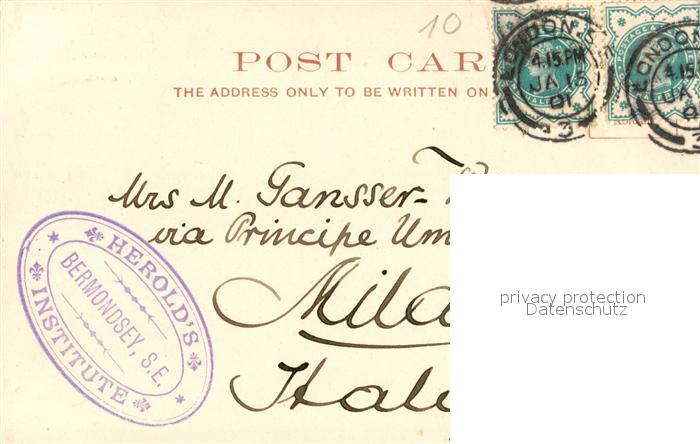 10
POST CAR
THE ADDRESS ONLY TO BE WRITTEN ON
LONDON S
4.15 PM
JA 15
01
3
LONDON
4.15
JA
3
Mrs M. Gansser-
via Principe Um
Mila
Itali
HEROLD'S
BERMONDSEY, S.E.
INSTITUTE
privacy protection
Datenschutz